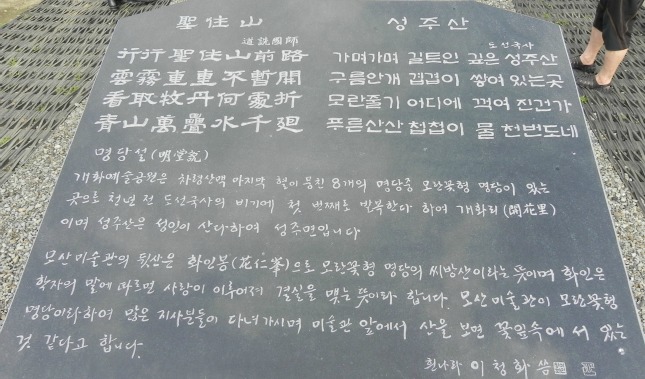 聖住山
道詵國師
行行聖住山前路
雲霧重重不暫開
看取牧丹何處折
青山萬疊水千廻
성주산
도선국사
가며가며 길트인 깊은 성주산
구름안개 겹겹이 쌓여 있는곳
모란줄기 어디에 꺽여 진건가
푸른산산 첩첩이 물 천번도네
명당설(明堂說)
개화예술공원은 차령산맥 마지막 혈이 뭉친 8개의 명당중 모란꽃형 명당이 있는
곳으로 천년 전 도선국사의 비기에 첫 번째로 발복한다 하여 개화리(開花里)
이며 성주산은 성인이 산다하여 성주면입니다
모산미술관의 뒷산은 화인봉(花仁峯)으로 모란꽃형 명당의 씨방산이라는 뜻이며 화인은
학자의 말에 따르면 사랑이 이루어져 결실을 맺는 뜻이라 합니다. 모산미술관이 모란꽃형
명당이라하여 많은 지사분들이 다녀가시며 미술관 앞에서 산을 보면 꽃잎속에 서 있는
것 같다고 합니다.
흰나라 이청화 씀